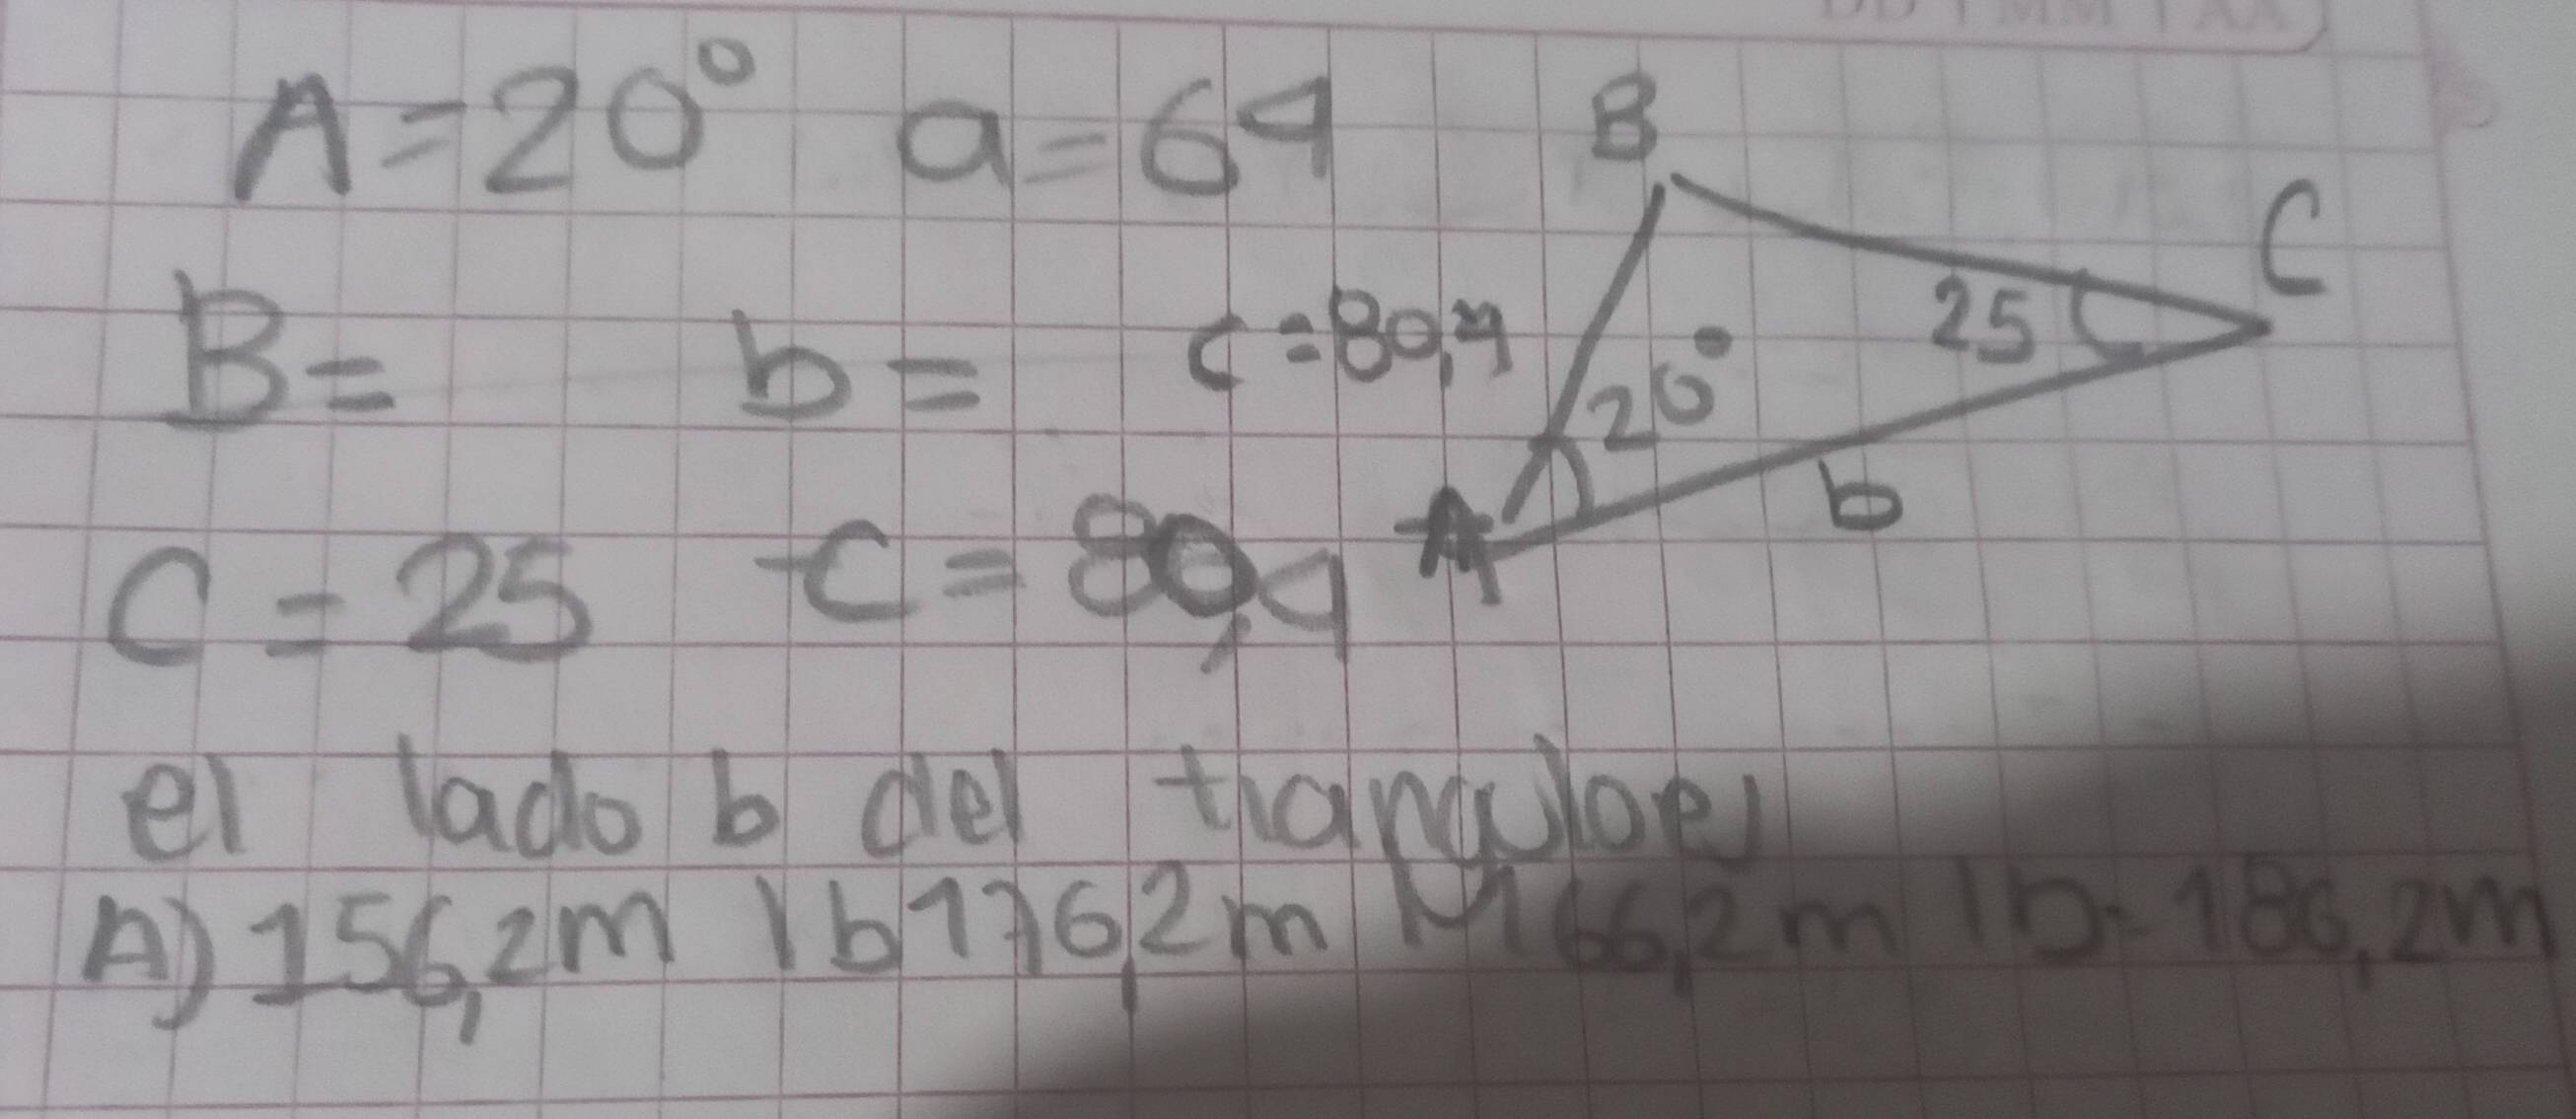 DD | MM | AA
A=20° a=64
B
C
B= b= c=80,4
25
20°
A
b
C=25 c=80,4
el lado b del triangulo es
A) 156,2m | b 176,2m 166,2m | b- 186,2m